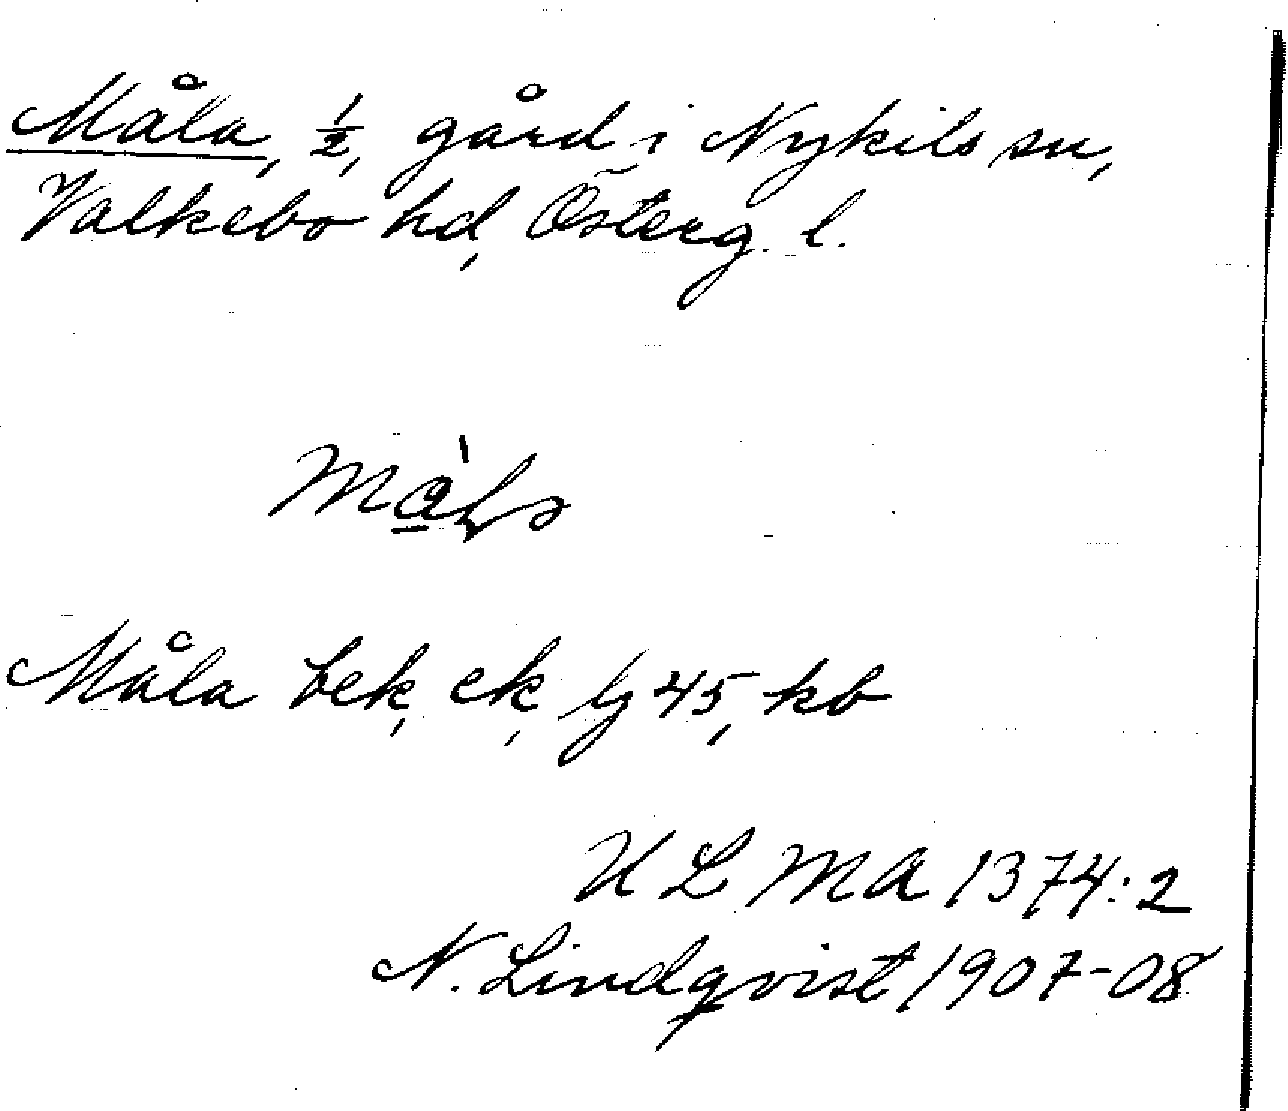 Måla, ½, gård i Nykils sn,
Valkebo hd, Österg. l.
Måla bek, ek, lg 45, kb
ULMA 1374:2
N. Lindqvist 1907-08